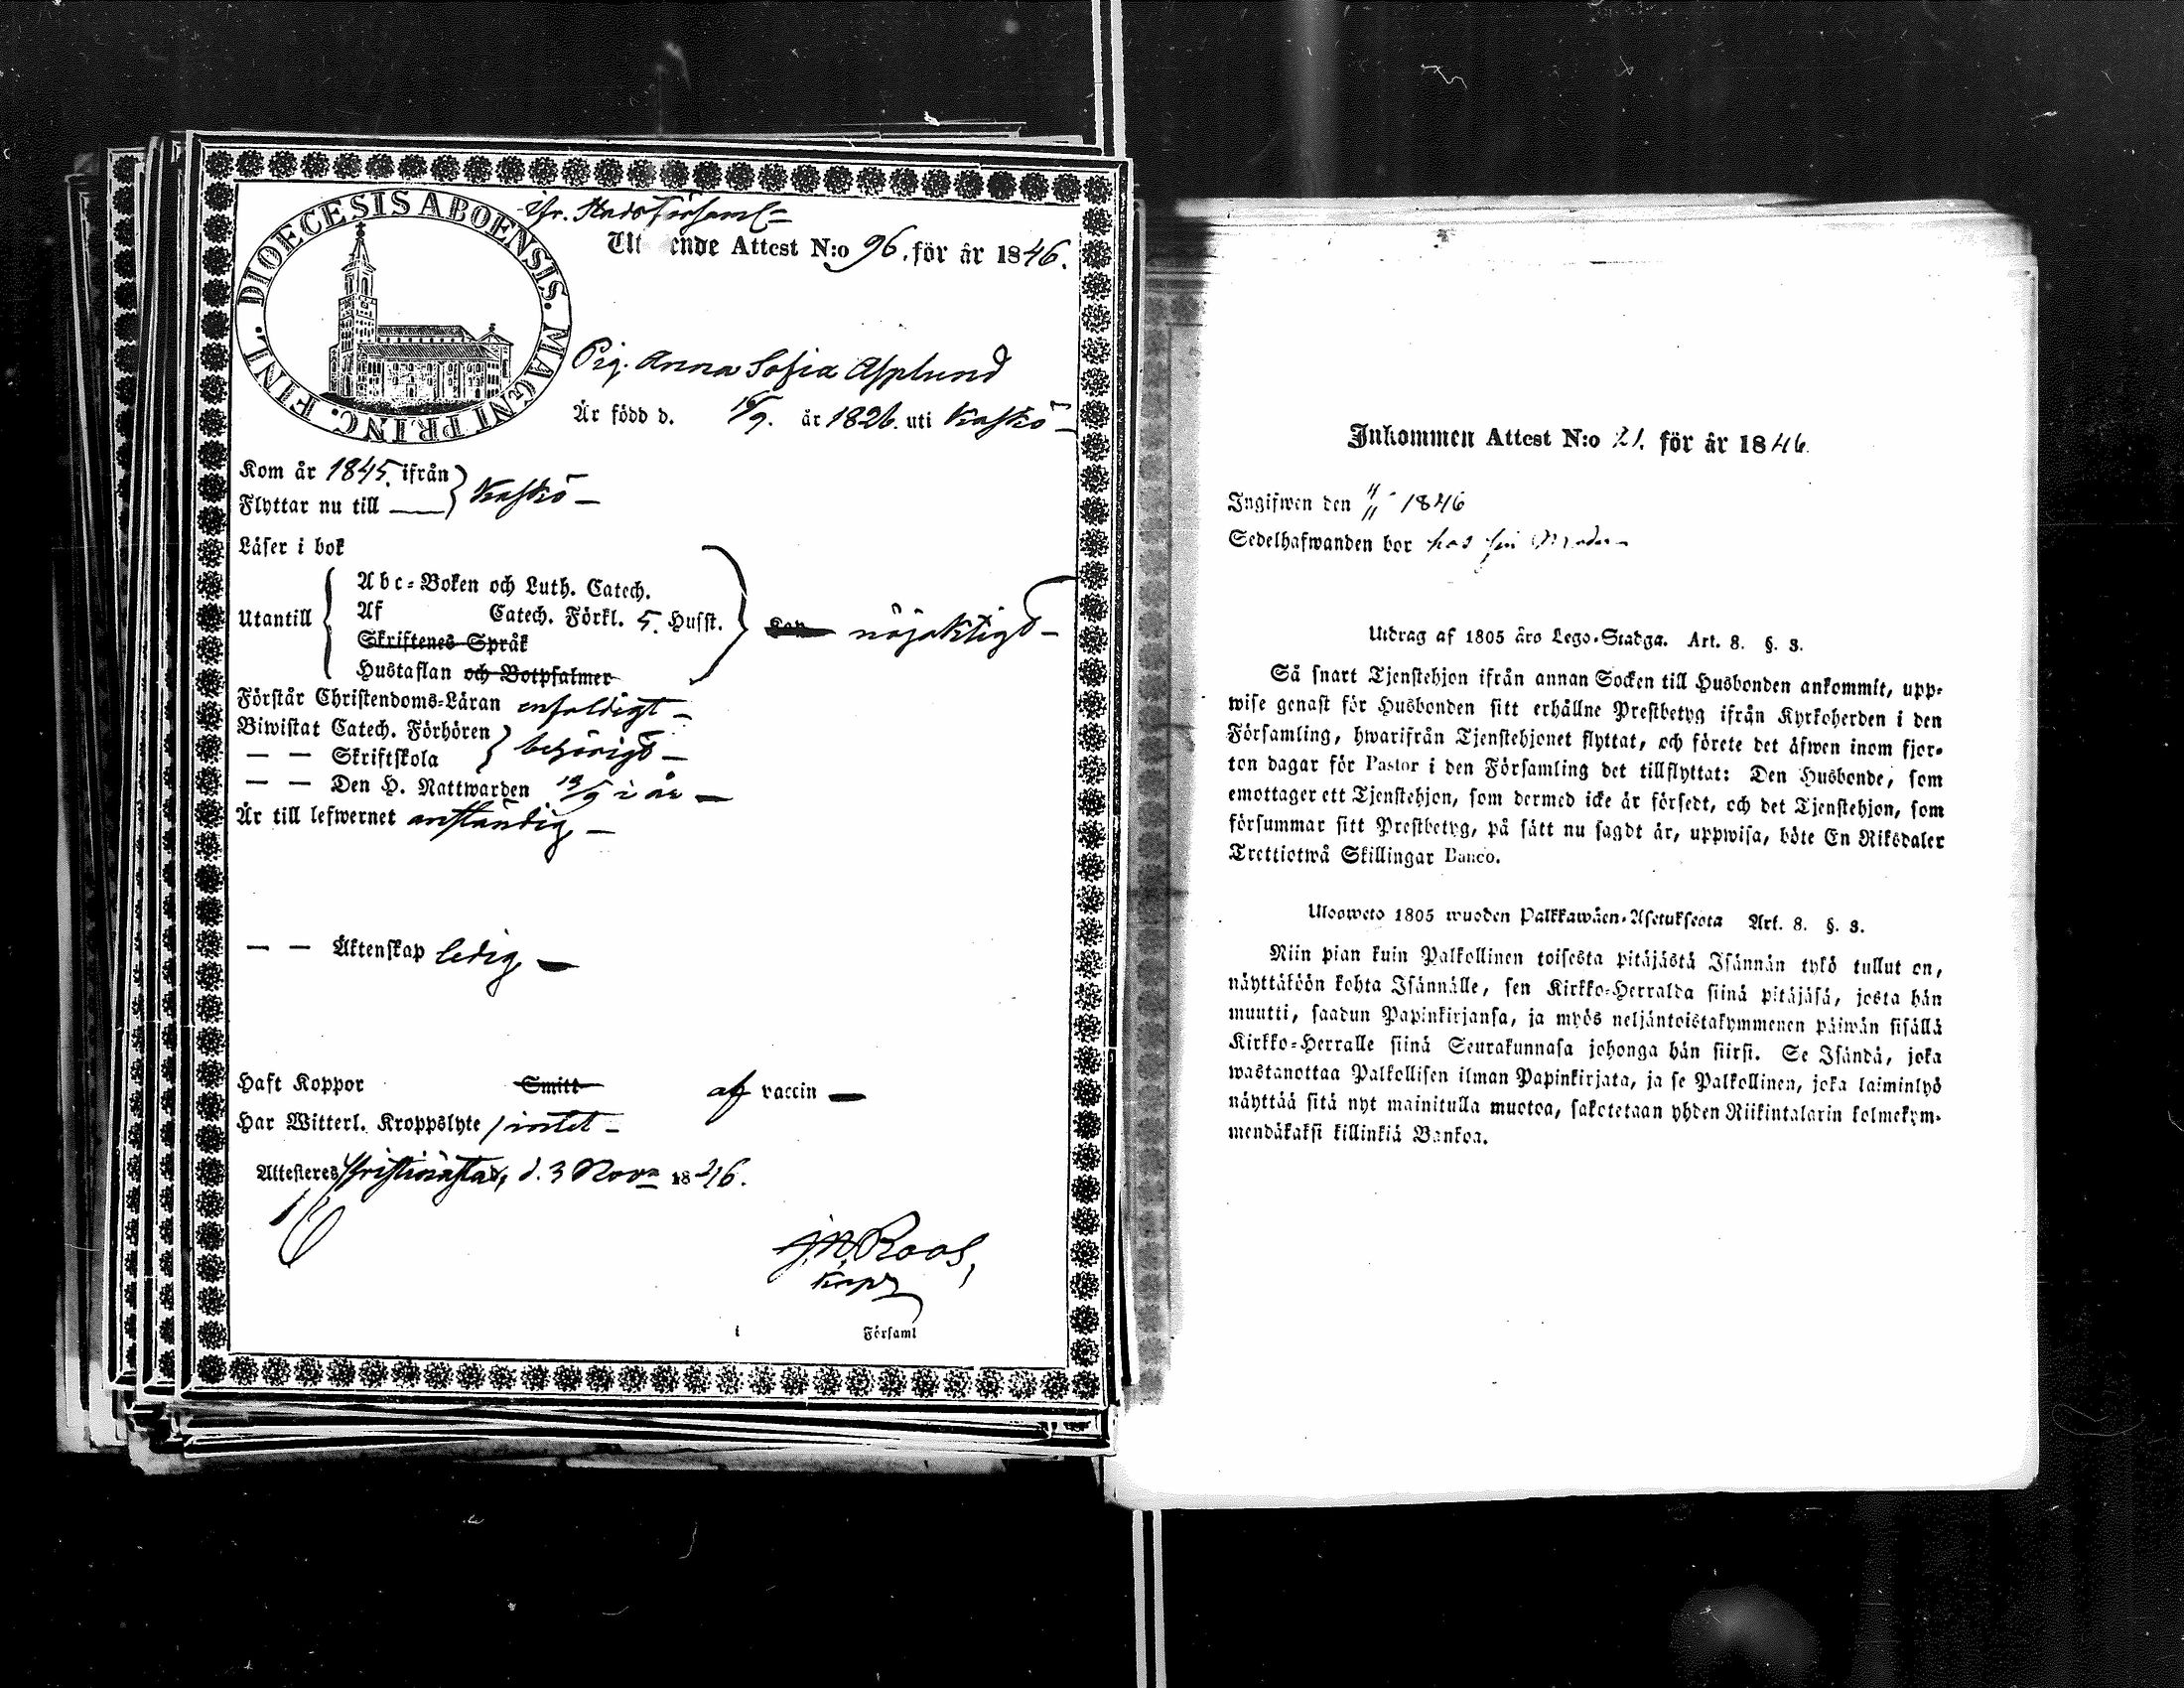 DIOECESIS ABOENSIS. MAGNI PRINC. FINL.
Fr. Stads Församl=
Ut ende Attest N:o 96. för år 1846.
Pig. Anna Sofia Asplund
Är född d. 16/9. år 1826 uti Kaskö
Kom år 1845. ifrån
Flyttar nu till } Kaskö
Läser i bok
Utantill
Abc-Boken och Luth. Catech.
Af Catech. Förkl. 5. Husst.
Skriftenes Språk
Hustaflan och Botpsalmer
nöjaktigt
Förstår Christendoms-Läran enfaldigt
Biwistat Catech. Förhören
— — Skriftskola } behörigt
— — Den H. Nattwarden 13/9 i år
Är till lefwernet anständig
— — Äktenskap ledig
Haft Koppor Smitt af vaccin
Har Witterl. Kroppslyte intet
Attesteres Christinæstad, d. 3 Nov. 1846.
J. N. Roos,
Kapl
i Församl
Inkommen Attest N:o 21. för år 1846.
Ingifwen den 4/11 1846
Sedelhafwanden bor hos sin Moder
Utdrag af 1805 års Lego-Stadga. Art. 8. §. 3.
Så snart Tjenstehjon ifrån annan Socken till Husbonden ankommit, upp-
wise genast för Husbonden sitt erhållne Prestbetyg ifrån Kyrkoherden i den
Församling, hwarifrån Tjenstehjonet flyttat, och förete det äfwen inom fjor-
ton dagar för Pastor i den Församling det tillflyttat: Den Husbonde, som
emottager ett Tjenstehjon, som dermed icke är försedt, och det Tjenstehjon, som
försummar sitt Prestbetyg, på sätt nu sagdt är, uppwisa, böte En Riksdaler
Trettiotwå Skillingar Banco.
Ulosweto 1805 wuoden Palkkawäen-Asetuksesta Art. 8. §. 3.
Niin pian kuin Palkollinen toisesta pitäjästä Isännän tykö tullut on,
näyttäköön kohta Isännälle, sen Kirkko-Herralda siinä pitäjäsä, josta hän
muutti, saadun Papinkirjansa, ja myös neljäntoistakymmenen päiwän sisällä
Kirkko-Herralle siinä Seurakunnasa johonga hän siirsi. Se Isändä, joka
wastanottaa Palkollisen ilman Papinkirjata, ja se Palkollinen, joka laiminlyö
näyttää sitä nyt mainitulla muotoa, sakotetaan yhden Riikintalarin kolmekym-
mendäkaksi killinkiä Bankoa.